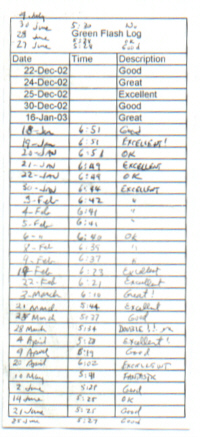 9 July
30 June 5:20 No
28 June
Green Flash Log
27 June 5:24 Good
Date Time Description
22-Dec-02 Good
24-Dec-02 Great
25-Dec-02 Excellent
30-Dec-02 Good
16-Jan-03 Great
18-Jan 6:51 Good
19-Jan 6:51 Excellent!
20-JAN 6:51 OK
21-JAN 6:49 EXCELLENT
22-JAN 6:49 OK
30-JAN 6:44 EXCELLENT
3-Feb 6:42 "
4-Feb 6:41 "
5-Feb 6:41 "
6- " 6:40 OK
8-Feb 6:39 "
9-Feb 6:37 "
Feb 6:23 Excellent
22-Feb 6:21 Excellent
2-March 6:10 Great!
21 March 5:44 Excellent
March 5:37 Good
28 March 5:14 DOUBLE!!
4 April 5:28 Excellent!
9 April Good
20 April 6:02 EXCELLENT
May FANTASTIC
2 June 5:25 Good
19 June 5:25 OK
21 June 5:25 Good
25 June 5:27 Good